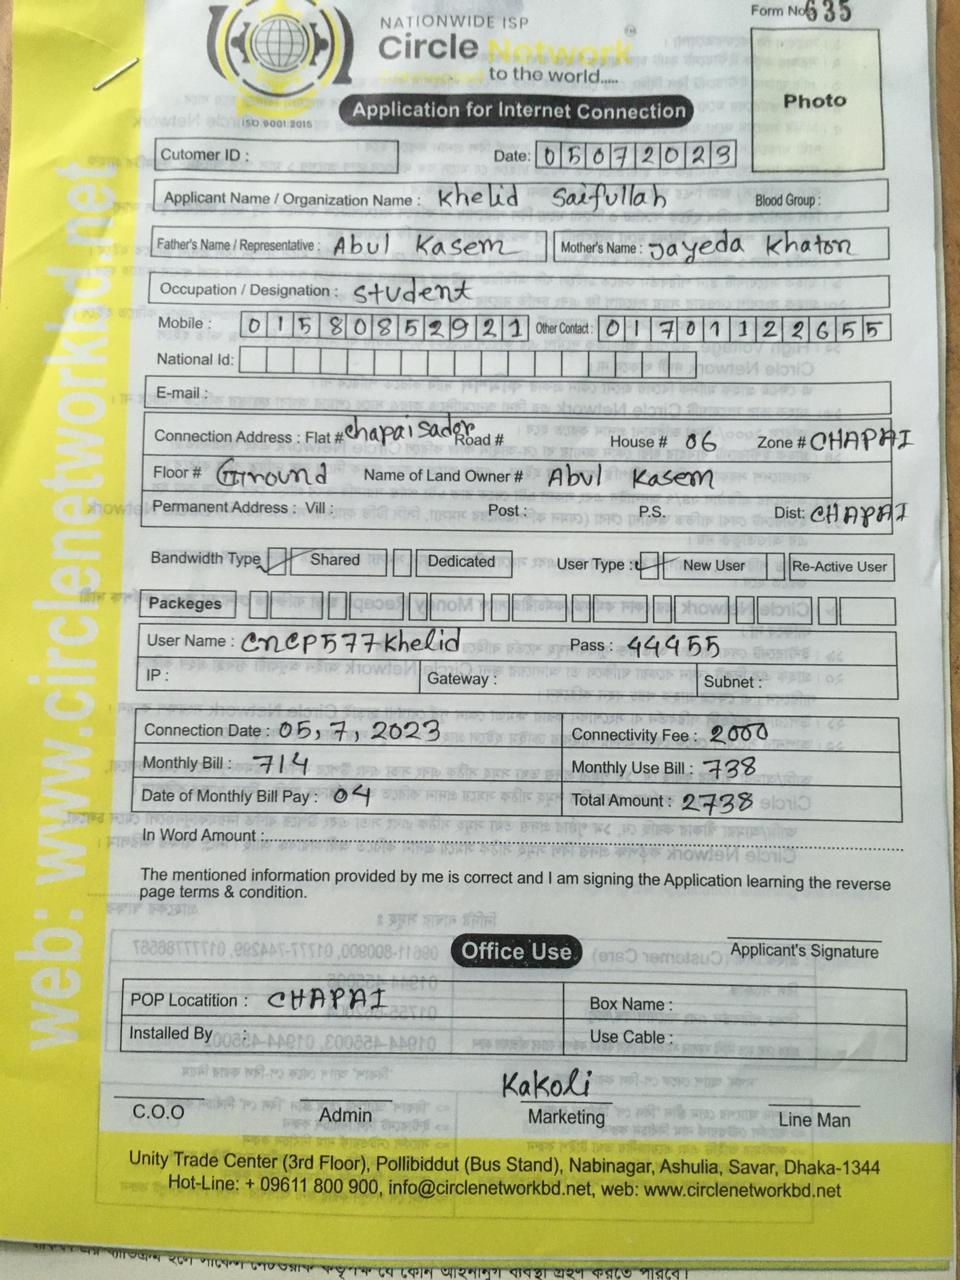 NATIONWIDE ISP
Circle Network
to the world.....
ISO 9001:2015
Form No 635
Photo
Application for Internet Connection
Cutomer ID :
Date: 05072023
Applicant Name / Organization Name : Khelid Saifullah Blood Group :
Father's Name / Representative : Abul Kasem Mother's Name : Jayeda Khaton
Occupation / Designation : Student
Mobile : 01580852921 Other Contact : 01701122655
National Id:
E-mail :
Connection Address : Flat # chapaisador Road # House # 06 Zone # CHAPAI
Floor # Ground Name of Land Owner # Abul Kasem
Permanent Address : Vill : Post : P.S. Dist: CHAPAI
Bandwidth Type Shared Dedicated User Type : New User Re-Active User
Packeges
User Name : CNCP577Khelid Pass : 44455
IP : Gateway : Subnet :
Connection Date : 05, 7, 2023 Connectivity Fee : 2000
Monthly Bill : 714 Monthly Use Bill : 738
Date of Monthly Bill Pay : 04 Total Amount : 2738
In Word Amount :
The mentioned information provided by me is correct and I am signing the Application learning the reverse
page terms & condition.
Applicant's Signature
Office Use
POP Locatition : CHAPAI Box Name :
Installed By : Use Cable :
Kakoli
C.O.O Admin Marketing Line Man
Unity Trade Center (3rd Floor), Pollibiddut (Bus Stand), Nabinagar, Ashulia, Savar, Dhaka-1344
Hot-Line: + 09611 800 900, info@circlenetworkbd.net, web: www.circlenetworkbd.net
web: www.circlenetworkbd.net